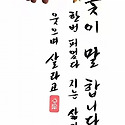 꽃이 말합니다
한번 피었다 지는 삶
웃으며 살라고